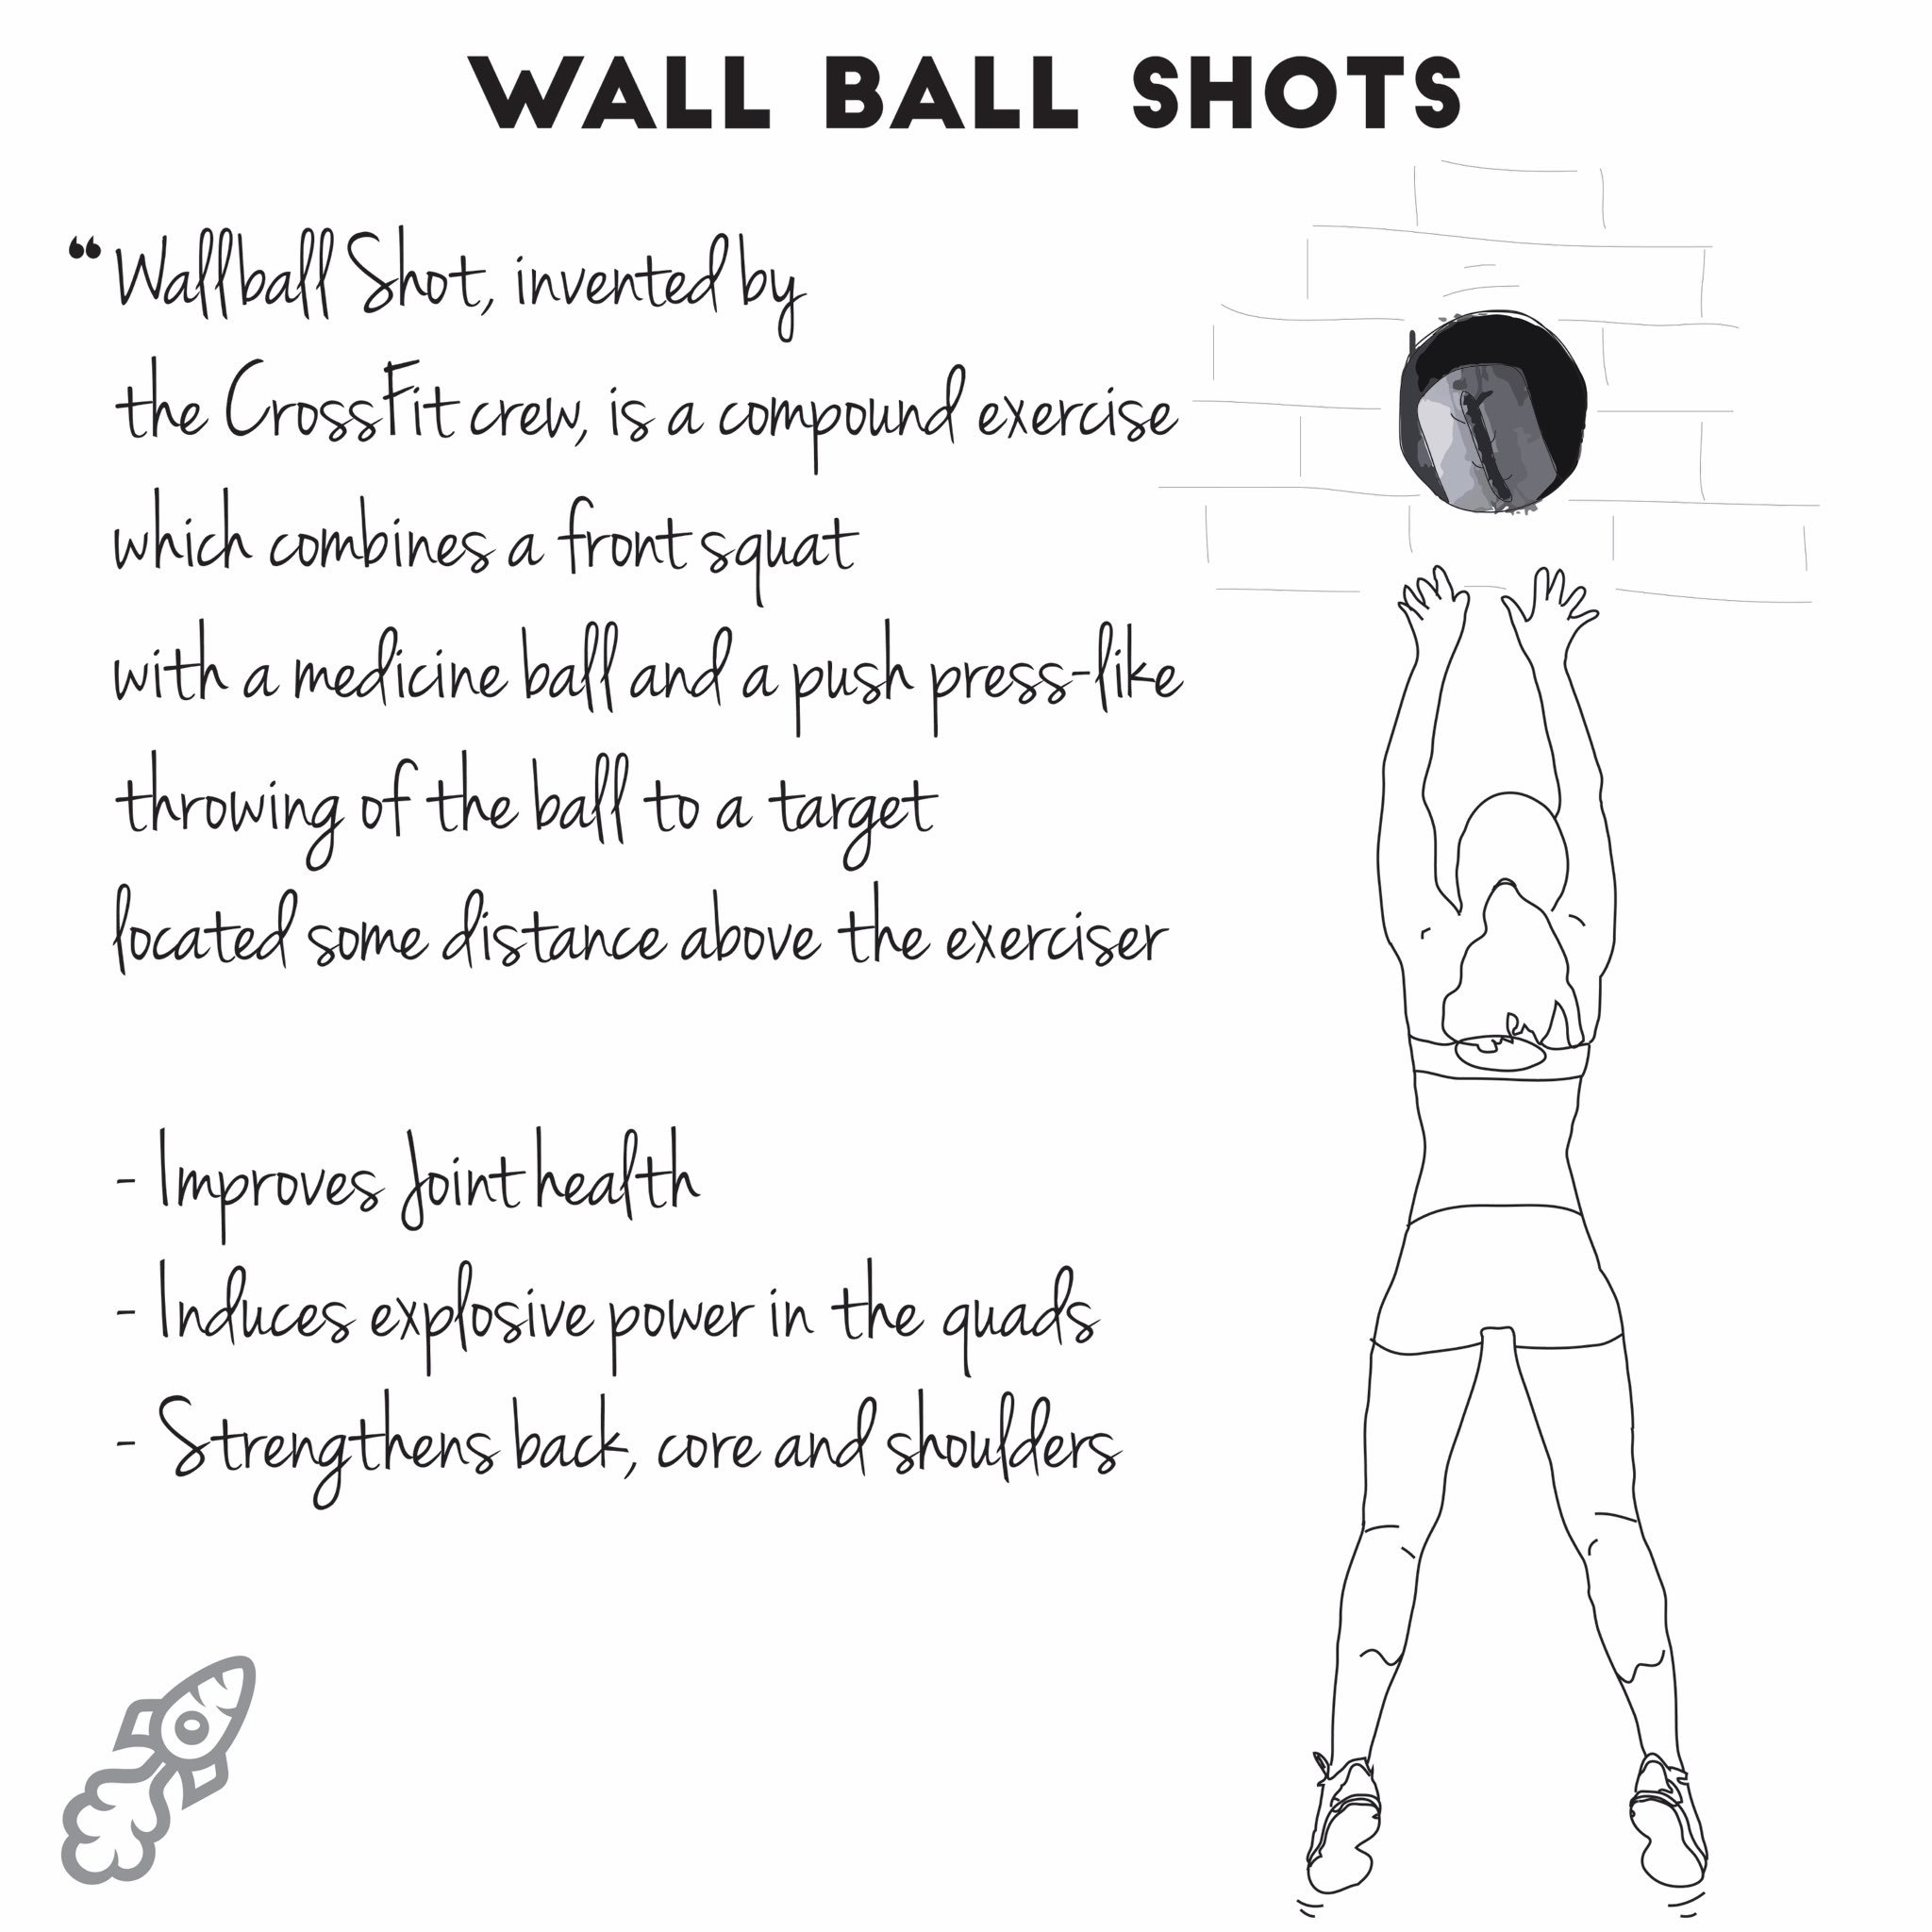 WALL BALL SHOTS
“Wallball Shot, invented by
the CrossFit crew, is a compound exercise
which combines a front squat
with a medicine ball and a push press-like
throwing of the ball to a target
located some distance above the exerciser
- Improves Joint health
- Induces explosive power in the quads
- Strengthens back, core and shoulders